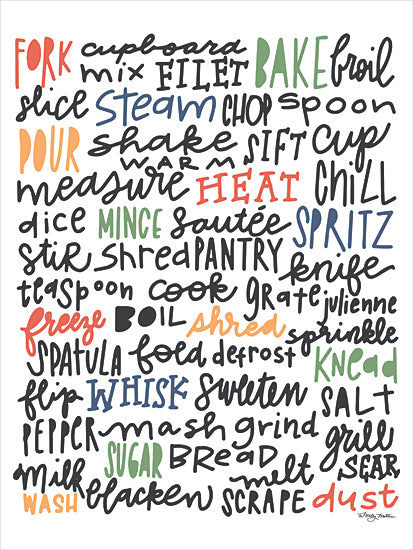 FORK cupboard
mix FILET BAKE broil
slice STEAM CHOP spoon
POUR shake SIFT CUP
WARM
measure HEAT CHILL
dice MINCE Sautée SPRITZ
STIR shred PANTRY knife
teaspoon cook grate julienne
freeze BOIL shred sprinkle
SPATULA fold defrost KNEAD
flip WHISK sweeten SALT
PEPPER mash grind grill
SUGAR BREAD SEAR
milk melt
WASH blacken SCRAPE dust